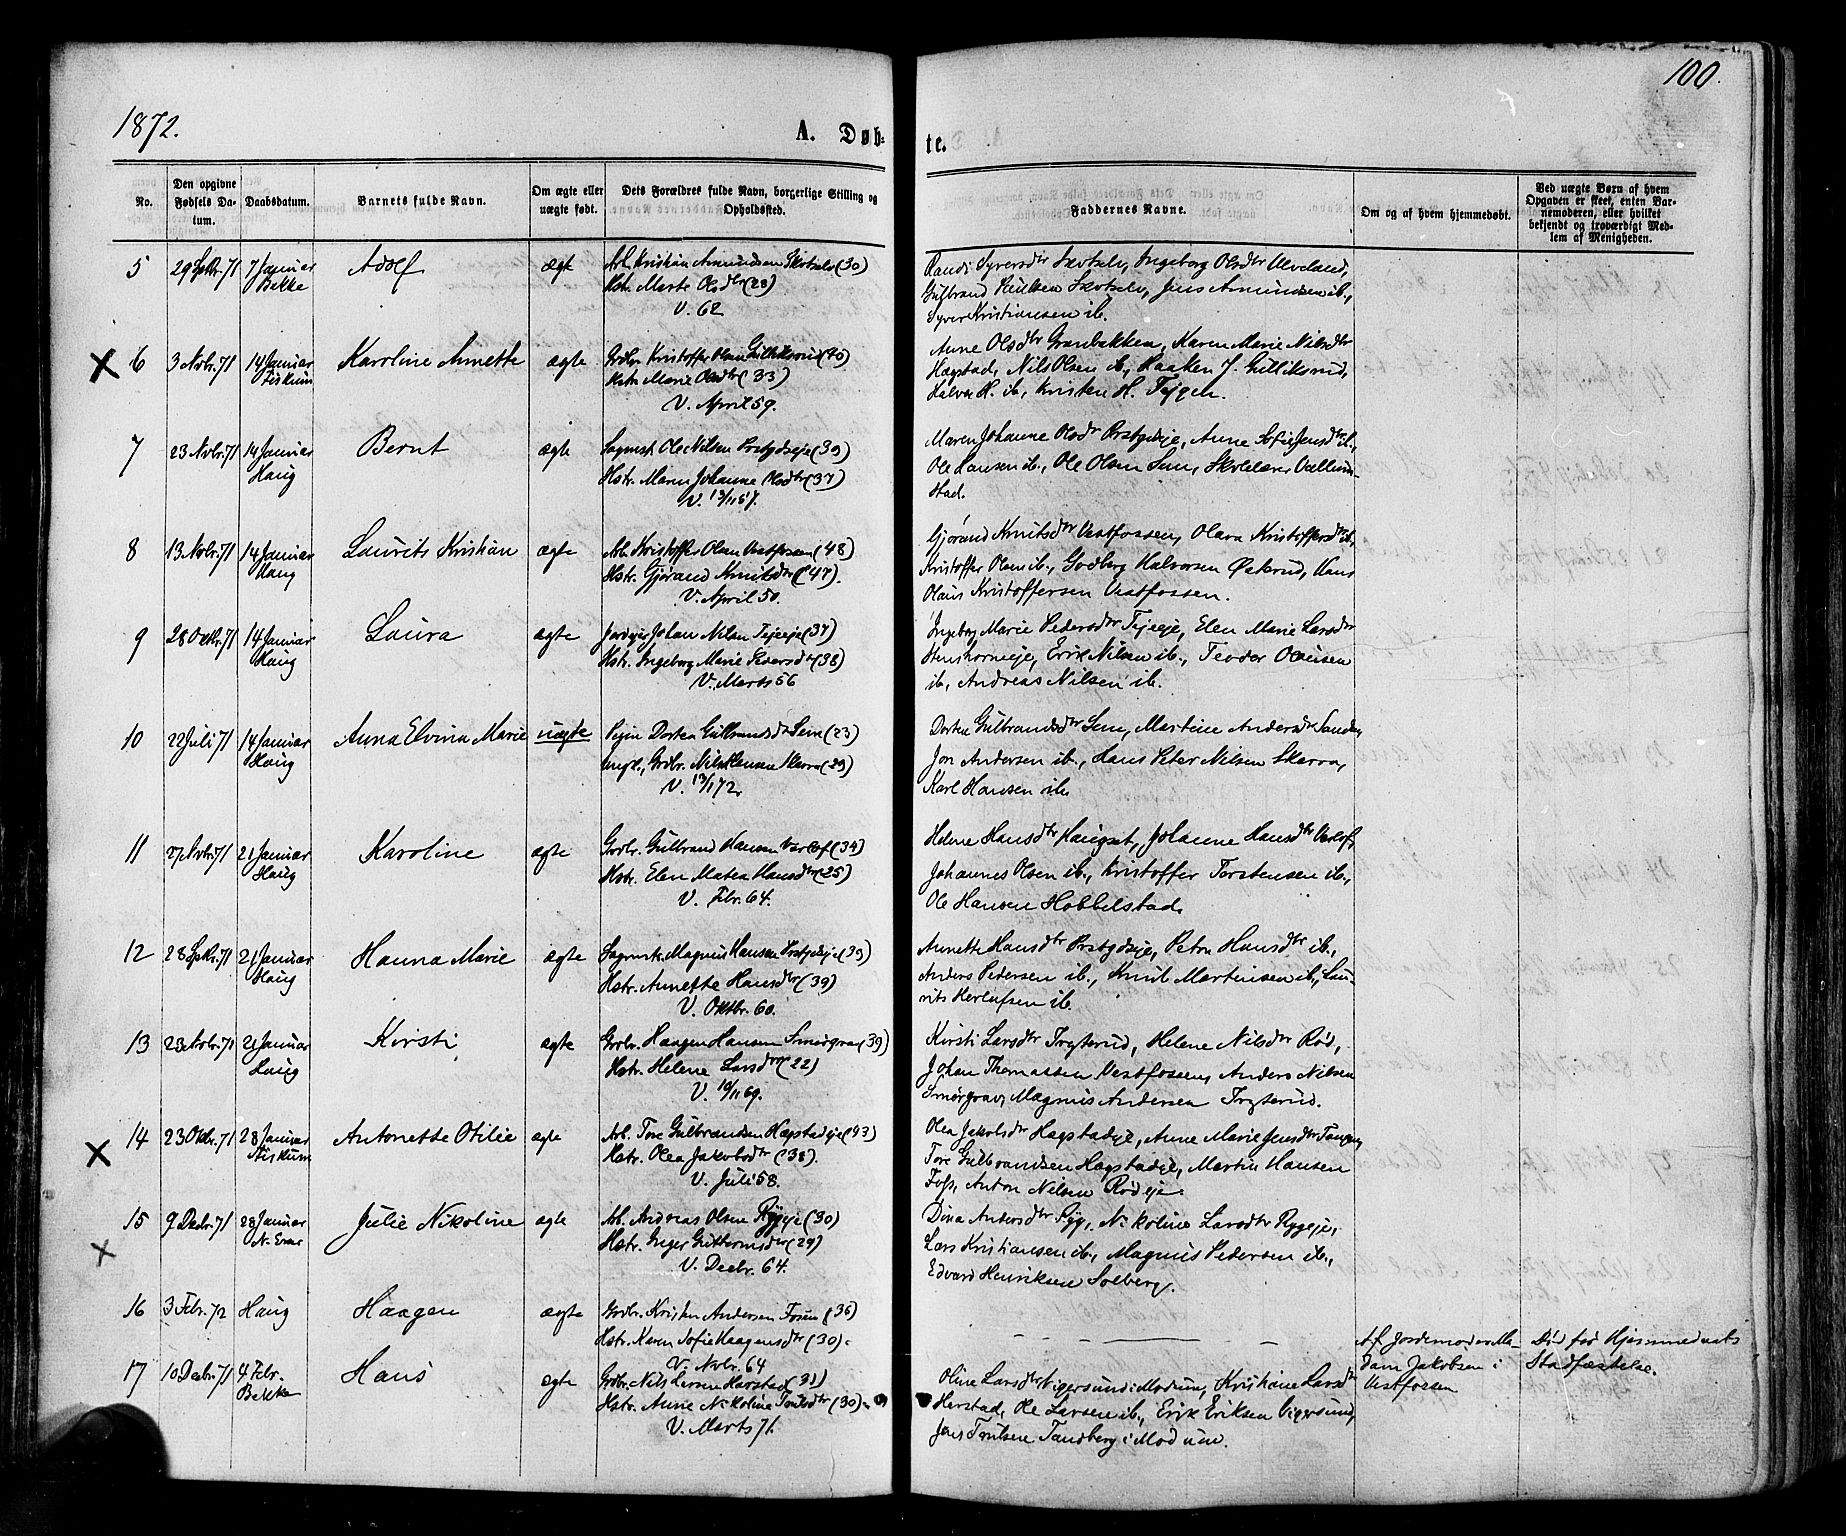 1872.
A. Døb-
te.
100.
No.
Den opgivne
Fødsels Da-
tum.
Daabsdatum.
Barnets fulde Navn.
Om ægte eller
uægte født.
Dets Forældres fulde Navn, borgerlige Stilling og
Opholdssted.
Faddernes Navne.
Om og af hvem hjemmedøbt.
Ved uægte Børn af hvem
Opgaven er skeet, enten Bar-
nemoderen, eller hvilket
bekjendt og troværdigt Med-
lem af Menigheden.
5 29 Sptbr. 71 7 Januar Adolf ægte Arb. Kristian Amundsen Skotselv (30)
Bakke Hstr. Marte Olsdtr (28)
V. 62
Randi Syversdtr Skotselv, Ingeborg Olsdtr Ulveland,
Gulbrand Skotselv, Jens Amundsen ib.,
Syver Kristiansen ib.
6 3 Novbr. 71 14 Januar Karoline Annette ægte Grdbr. Kristoffer Olsen Gulliksrud (40)
Fiskum Hstr. Marie Olsdtr (33)
V. April 59.
Anne Olsdtr Granbakken, Karen Marie Nilsdtr
Hagstad, Nils Olsen ib, Haaken J. Gulliksrud,
Halvor H. ib., Kristen H. Tejgen.
7 23 Novbr. 71 14 Januar Bernt ægte Sagmst. Ole Nilsen Prstgdseje (39)
Haug Hstr. Maren Johanne Olsdtr (37)
V. 13/11 57.
Maren Johanne Olsdtr Prstgdseje, Anne Sofie Jensdtr ib.,
Ole Hansen ib., Ole Olsen Sem, Skolelærer
stad.
8 13 Novbr. 71 14 Januar Laurits Kristian ægte Arb. Kristoffer Olsen Vestfossen (48)
Haug Hstr. Gjørand Knutsdtr (47).
V. April 50.
Gjørand Knutsdtr Vestfossen, Olava Kristoffersdtr ib.,
Kristoffer Olsen ib., Godberg Halvorsen Øskerud, Hans
Olaus Kristoffersen Vestfossen.
9 28 Oktbr. 71 14 Januar Laura ægte Johan Nilsen Tejeeje (37)
Haug Hstr. Ingeborg Marie Pedersdtr (38)
V. Marts 56
Ingeborg Marie Pedersdtr Tejeeje, Elen Marie Larsdtr
Stenshorneeje, Erik Nilsen ib., Teodor Olausen
ib., Andreas Nilsen ib.
10 22 Juli 71 14 Januar Anna Elvina Marie uægte Pigen Dortea Gulbrandsdtr Sem (23)
Haug Ungk., Grdbr. Nils Hansen (29)
V. 13/1 72.
Dortea Gulbrandsdtr Sem, Martine Andersdtr Sanden,
Jon Andersen ib., Hans Peter Nilsen Skarra,
Karl Hansen ib.
11 27 Novbr. 71 21 Januar Karoline ægte Grdbr. Gulbrand Hansen Varlof (34)
Haug Hstr. Elen Matea Hansdtr (25)
V. Febr. 64.
Helene Hansdtr Haugset, Johanne Hansdtr
Johannes Olsen ib., Kristoffer Torstensen ib.,
Ole Hansen Hobbelstad.
12 28 Sptbr. 71 21 Januar Hanna Marie ægte Sagmst. Magnus Hansen Prstgdseje (39)
Haug Hstr. Annette Hansdtr (39)
V. Oktbr. 60.
Annette Hansdtr Prstgdseje, Petra Hansdtr ib.,
Anders Pedersen ib., Knut Martinsen ib., Lau-
rits Herlufsen ib.
13 23 Novbr. 71 21 Januar Kirsti ægte Grdbr. Haagen Hansen Smørgrav (39)
Haug Hstr. Helene Larsdtr (22)
V. 10/11 69.
Kirsti Larsdtr Trgterud, Helene Nilsdtr Rød,
Johan Thomassen Vestfossen, Anders Nilsen
Smørgrav, Magnus Andersen Trgterud.
14 23 Oktbr. 71 28 Januar Antonette Otilie ægte Arb. Tore Gulbrandsen Hagstadeje (43)
Fiskum Hstr. Olea Jakobsdtr (38).
V. Juli 58.
Olea Jakobsdtr Hagstadeje, Anne Marie Jensdtr Tangen,
Tore Gulbrandsen Hagstadeje, Martin Hansen
Foss, Anton Nilsen Rødeje.
15 9 Decbr. 71 28 Januar Julie Nikoline ægte Arb. Andreas Olsen Rygeje (30)
N. Eker Hstr. Inger Guttormsdtr (29)
V. Decbr. 64.
Dina Andersdtr Ryg, Nikoline Larsdtr Rygeje,
Lars Kristiansen ib., Magnus Pedersen ib.,
Edvard Henriksen Solberg.
16 3 Febr. 72 Haug Haagen ægte Grdbr. Kristen Andersen Fosun (36)
Hstr. Karen Sofie Haagensdtr (30).
V. Novbr. 64
Af Jordemoder Ma-
dam Jakobsen i
Vestfossen
Død før Hjemmedaabs
Stadfæstelse.
17 10 Decbr. 71 4 Febr. Hans ægte Grdbr. Nils Larsen Harstad (31)
Bakke Hstr. Anne Nikoline Toutsdtr (30).
V. Marts 71.
Oline Larsdtr Vigersund i Modum, Kristine Larsdtr
Harstad, Ole Larsen ib., Erik Eriksen Vigersund,
Jens Toutsen Tandberg i Modum.